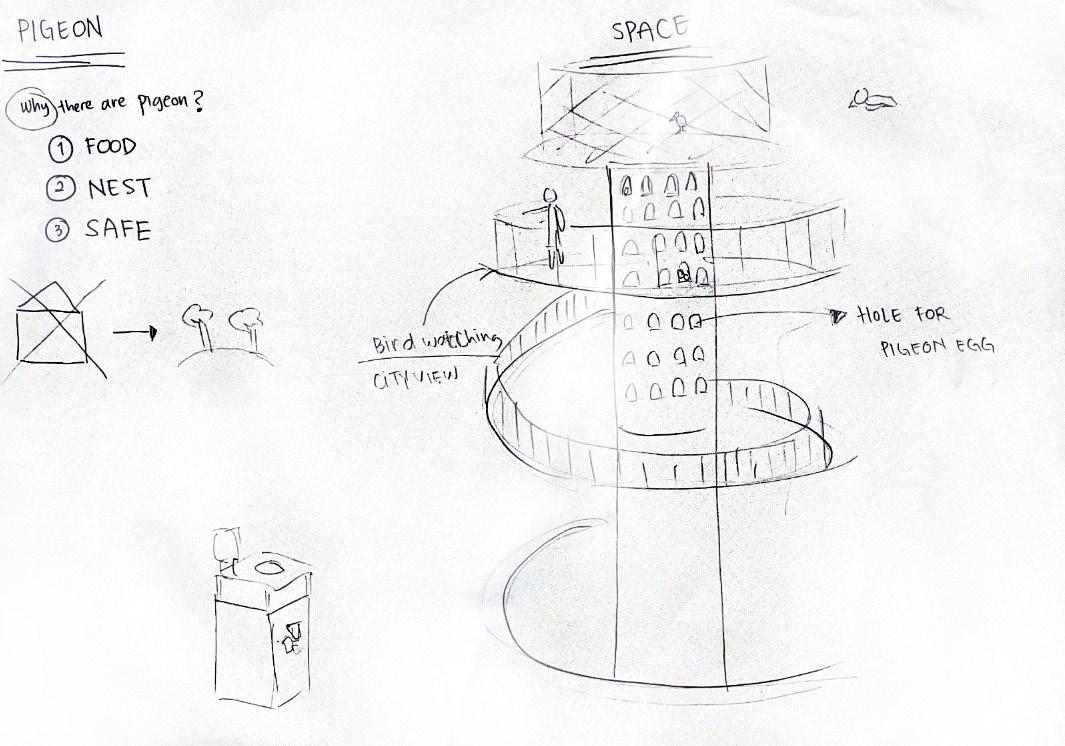 PIGEON
Why there are pigeon?
1 FOOD
2 NEST
3 SAFE
SPACE
Bird watching
CITY VIEW
HOLE FOR
PIGEON EGG